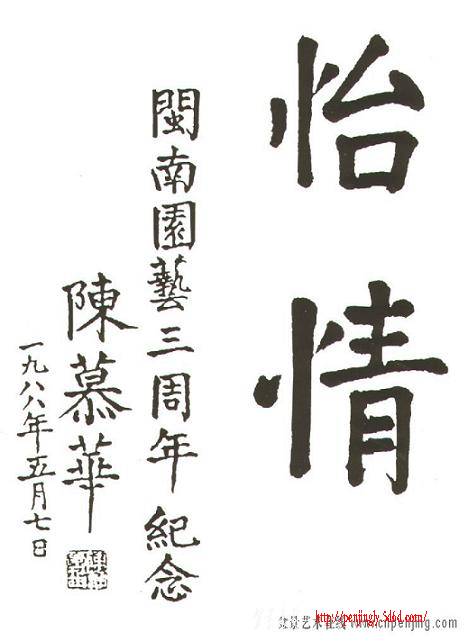 怡情
閩南園藝三周年紀念
陳慕華
一九八八年五月七日
http://penjingly.5d6d.com/
盆景艺术在线 www.cnpenjing.com